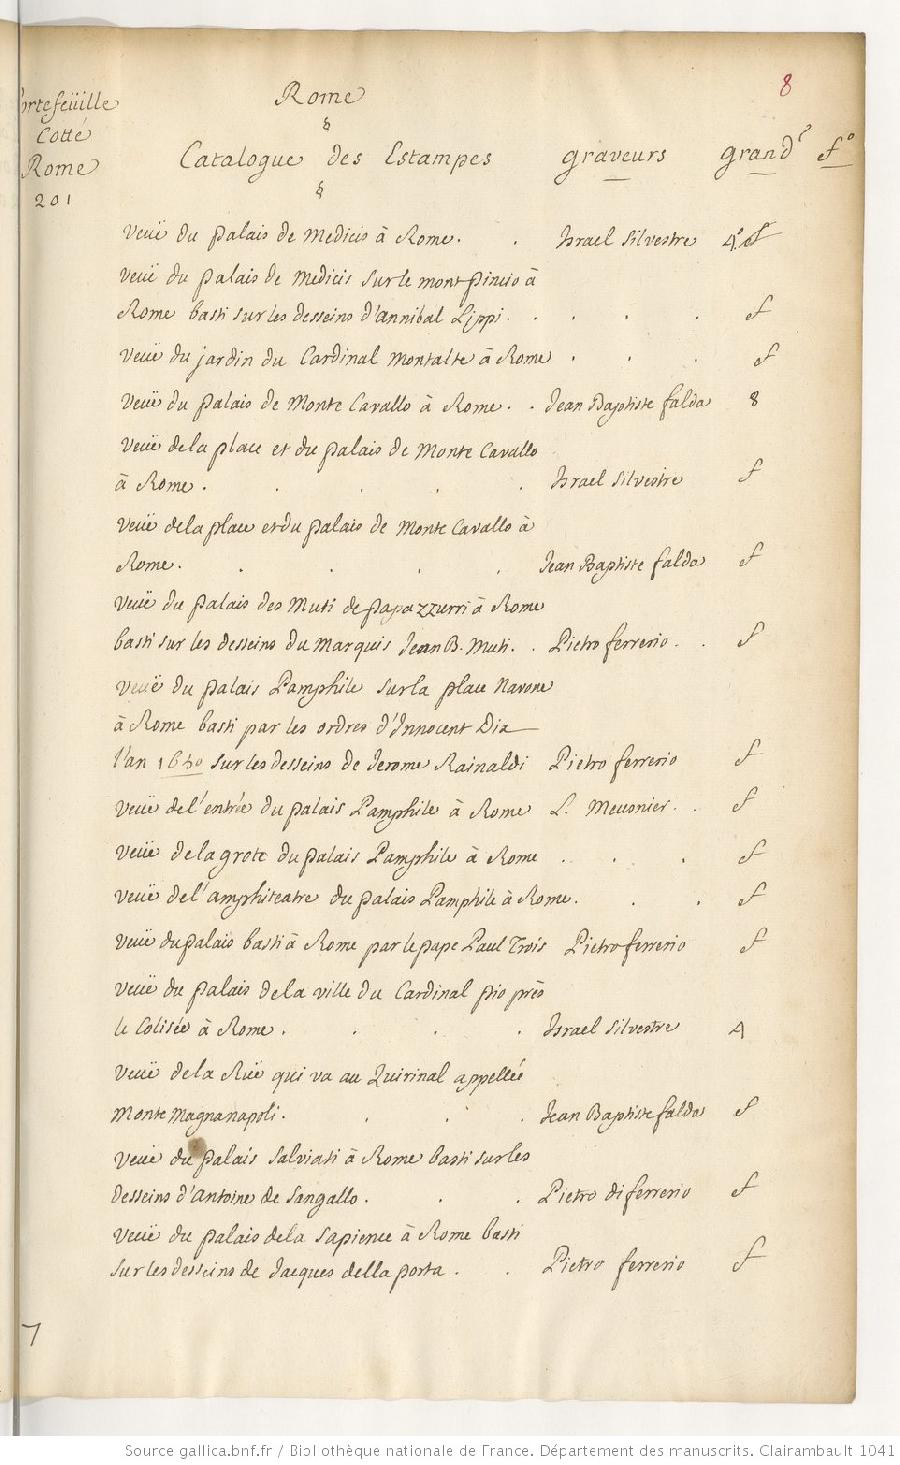 8
Rome
ortefeüille
Cotté
Rome
201
Catalogue des Estampes graveurs grand.r fo
Veuë du palais de Medicis à Rome. . Israel Silvestre 4.o f
Veuë du palais de Medicis sur le mont pincio à
Rome basti sur les desseins d'annibal Lippi. . . . . f
Veuë du jardin du Cardinal Montalte à Rome . . . f
Veuë du palais de Monte Cavallo à Rome. . Jean Baptiste falda 8
Veuë de la place et du palais de Monte Cavallo
à Rome. . . . . Israel Silvestre f
Veuë de la place et du palais de Monte Cavallo à
Rome. . . . . Jean Baptiste falda f
Veuë du palais des Muti de papazzurri à Rome
basti sur les desseins du Marquis Jean B. Muti. . Pietro ferrerio . . f
Veuë du palais Pamphile sur la place Navone
à Rome basti par les ordres d'Innocent Dix
l'an 1650 sur les desseins de Jerome Rainaldi Pietro ferrerio f
Veuë de l'entrée du palais Pamphile à Rome L. Meunier . . f
Veuë de la grote du palais Pamphile à Rome . . . f
Veuë de l'amphiteatre du palais Pamphile à Rome. . . f
Veuë du palais basti à Rome par le pape Paul Trois Pietro ferrerio f
Veuë du palais de la ville du Cardinal pio près
le Colisée à Rome. . . . Israel Silvestre 4
Veuë de la Ruë qui va au Quirinal appellée
Monte Magnanapoli. . . . Jean Baptiste falda f
Veuë du palais Salviati à Rome basti sur les
desseins d'Antoine de Sangallo. . . Pietro di ferrerio f
Veuë du palais de la Sapience à Rome basti
sur les desseins de Jacques della porta . . Pietro ferrerio f
7
Source gallica.bnf.fr / Bibliothèque nationale de France. Département des manuscrits. Clairambault 1041